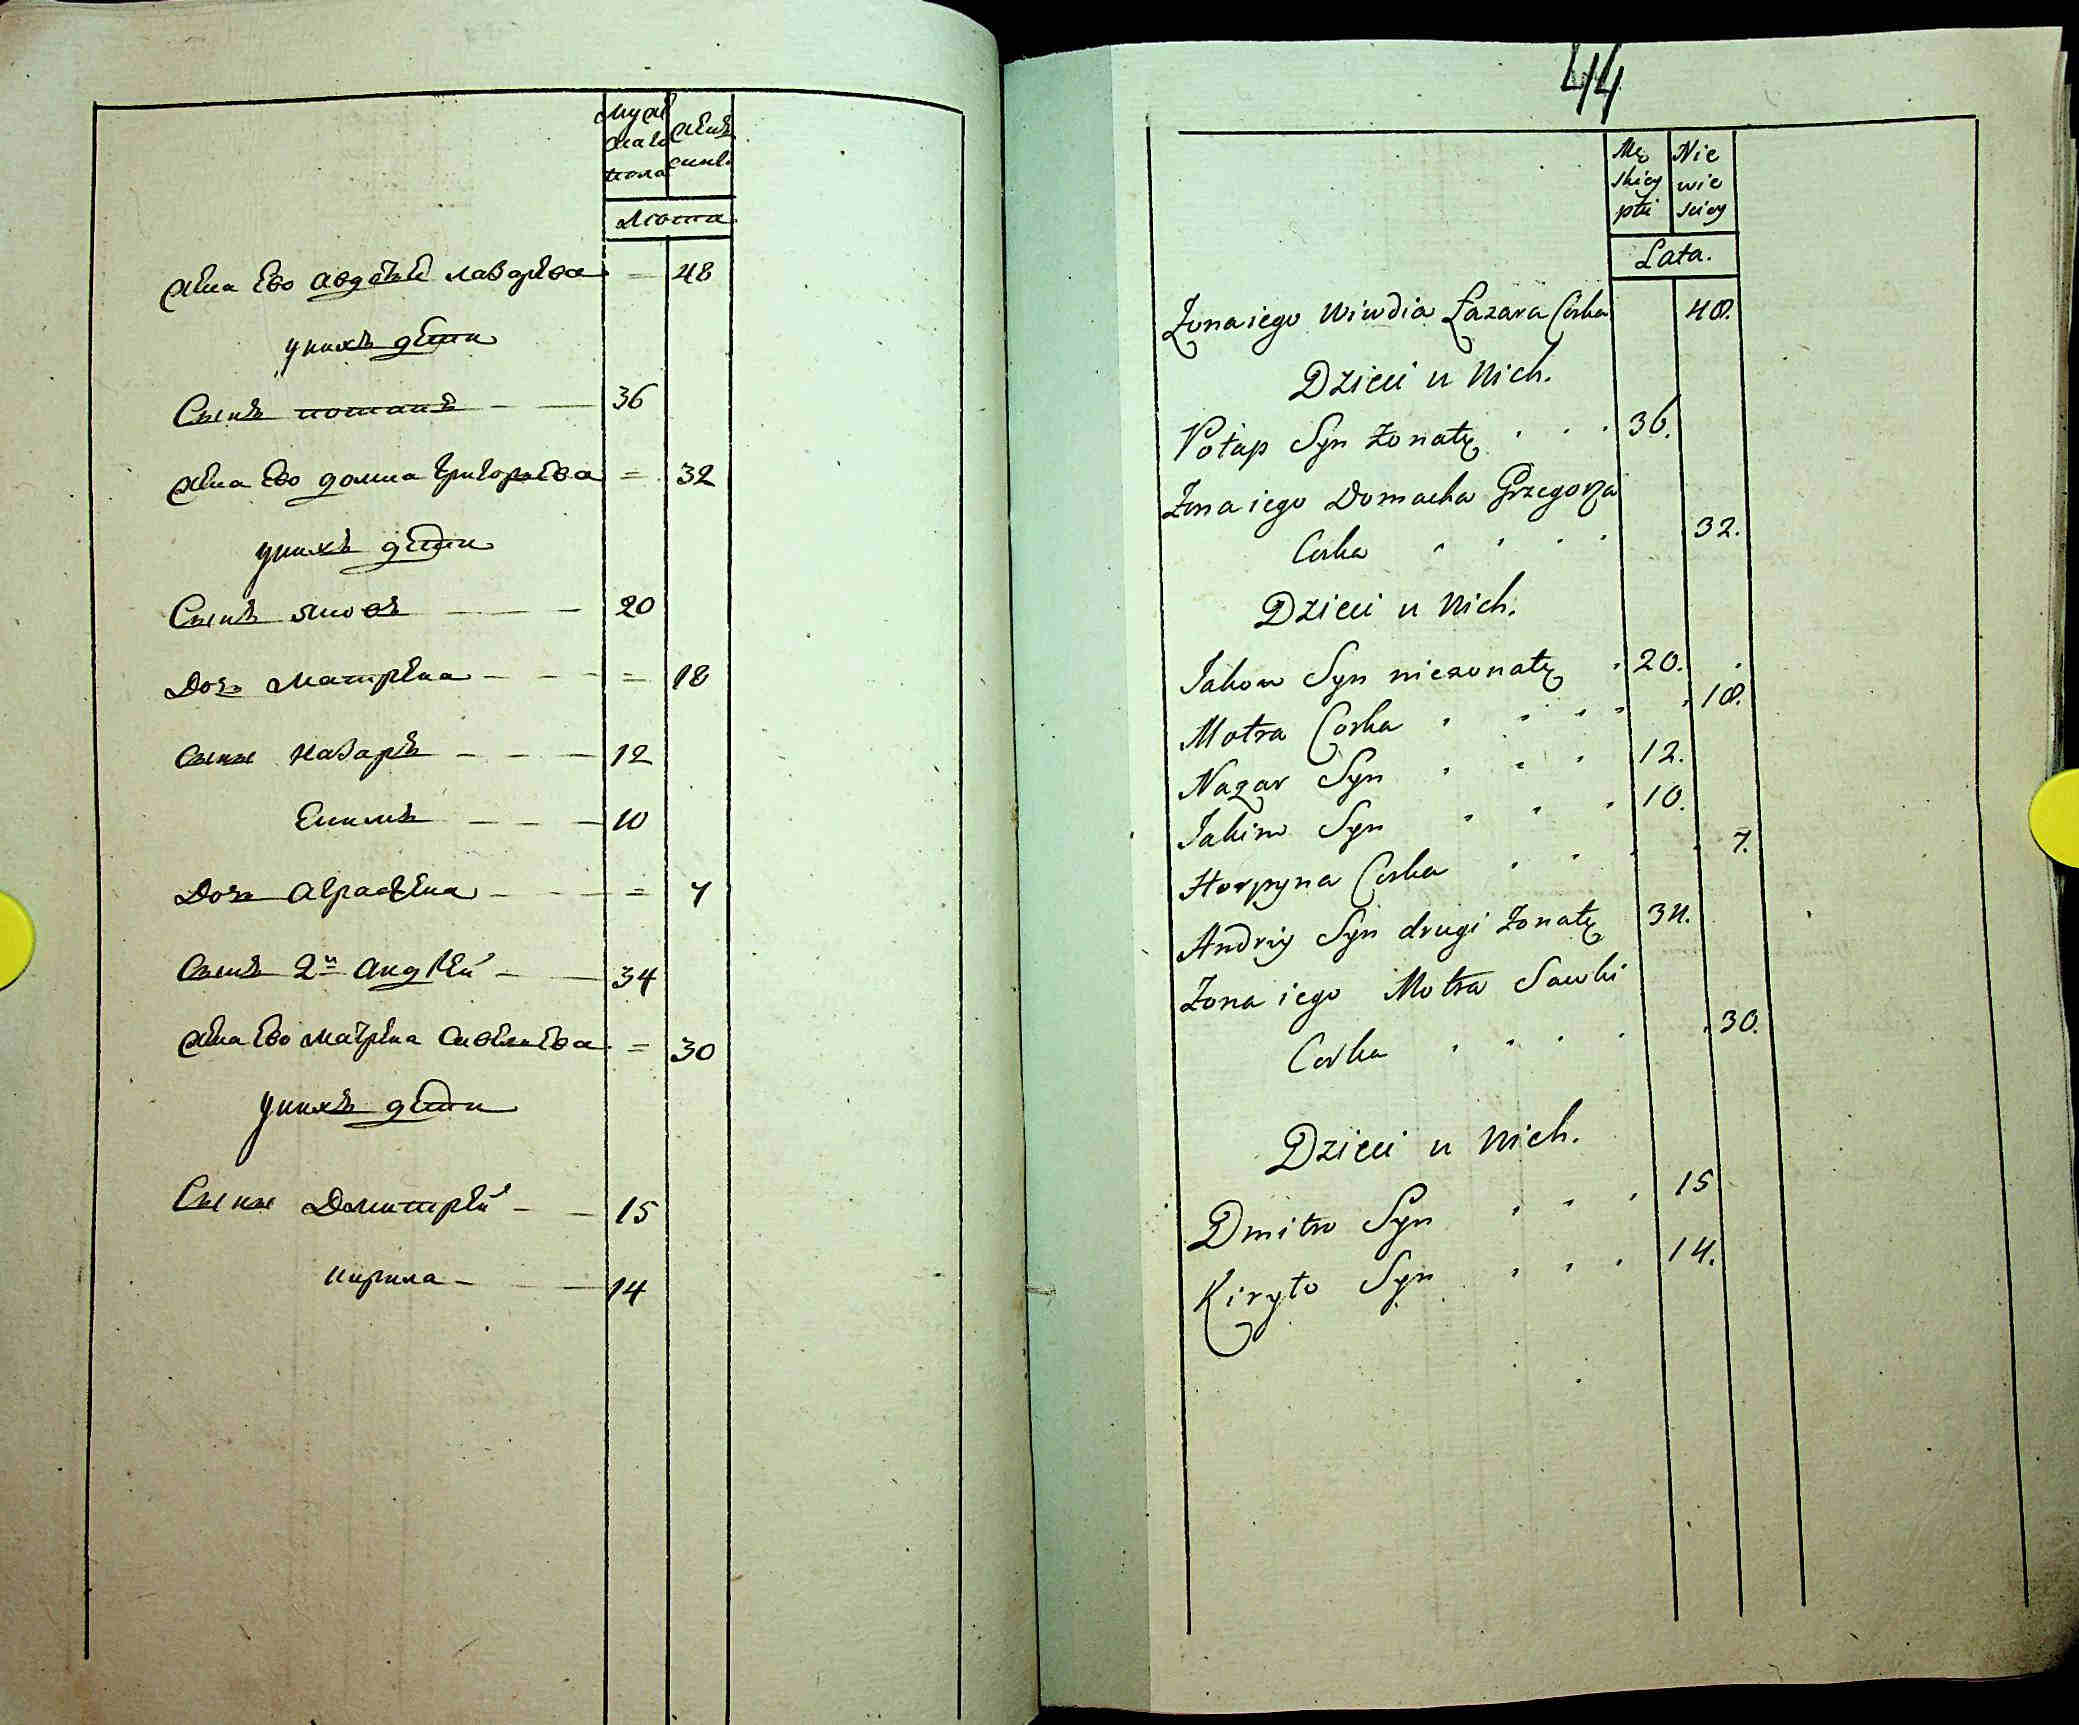 Муже
скаго
пола
Женс
скаго
Лѣта
Жена Ево Авдотья Лазарева = 48
у нихъ дѣти
Сынъ потапъ — — 36
Жена Ево домна Григорьева = 32
у нихъ дѣти
Сынъ яковъ — — — 20
Дочь Матрена — — — = 18
Сыны Назаръ — — — 12
Екимъ — — — 10
Дочь Аграфена — — — = 7
Сынъ 2й Андрѣй — — 34
Жена Ево Матрена Савельева = 30
у нихъ дѣти
Сыны Дмитрѣй — — 15
кирила — — — 14
44
Mę
skiey
płci
Nie
wie
sciey
Lata.
Żona iego Wiwdia Łazara Corka 48.
Dzieci u Nich.
Potap Syn żonaty . . . 36.
Żona iego Domacha Grzegorza
Corka . . . . 32.
Dzieci u Nich.
Jakow Syn nieżonaty . 20.
Motra Corka . . . . . 18.
Nazar Syn . . . 12.
Jakim Syn . . . 10.
Horpyna Corka . . . . 7.
Andriy Syn drugi żonaty 34.
Żona iego Motra Sawki
Corka . . . . . 30.
Dzieci u Nich.
Dmitro Syn . . . 15
Kiryło Syn . . . 14.